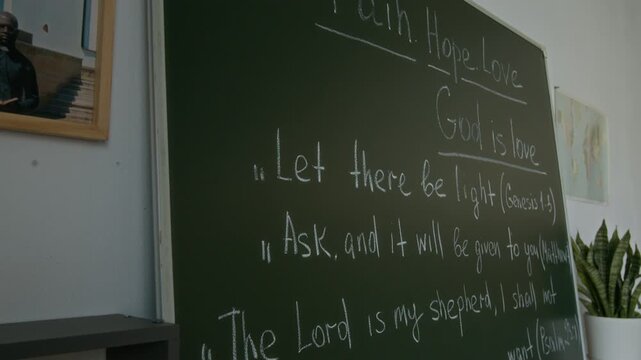 Faith. Hope. Love
God is love
"Let there be light (Genesis 1:1)
"Ask, and it will be given to you (Matthew
"The Lord is my shepherd, I shall not
want (Psalm